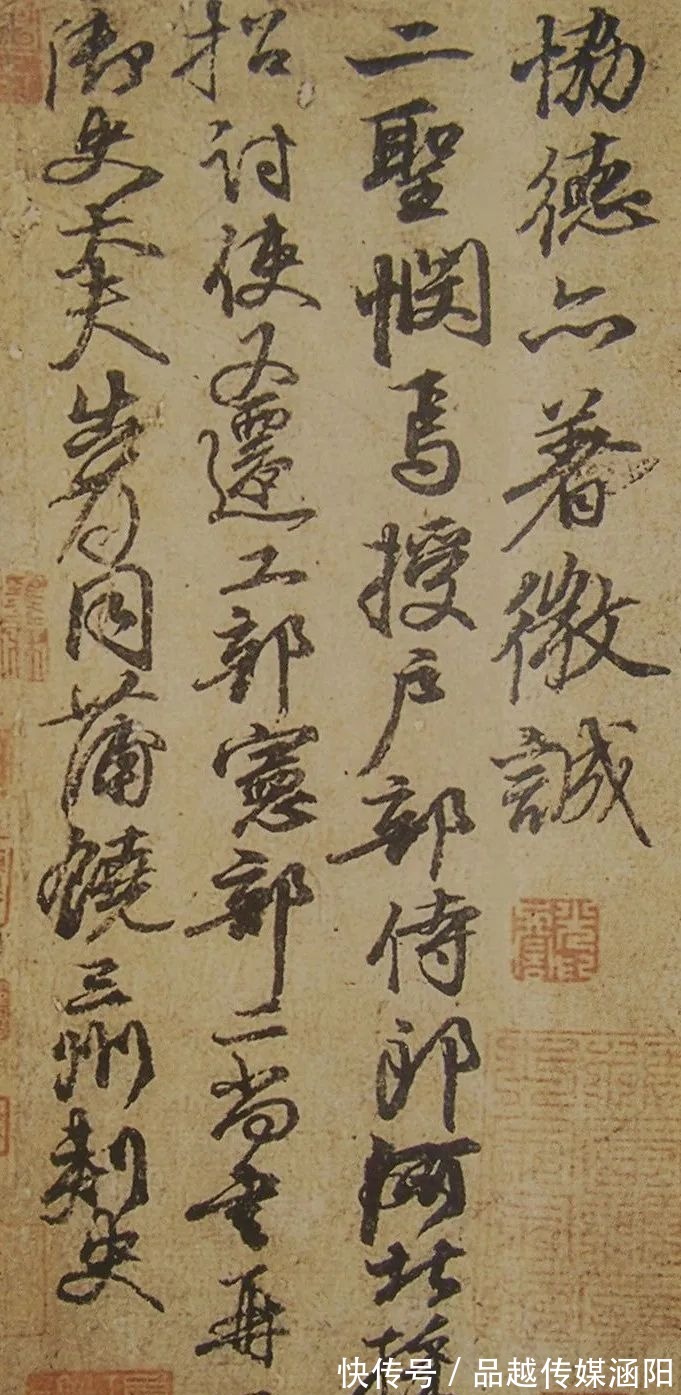 恊德亦著微誠
二聖憫焉授户部侍郎河北採
招討使又遷工部憲部二尚書再
御史大夫出為同蒲饒三州刺史
快传号 / 品越传媒涵阳